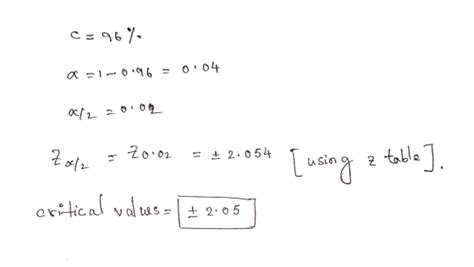 c = 96%.
α = 1-0.96 = 0.04
α/2 = 0.02
Zα/2 = Z0.02 = ± 2.054 [using z table].
critical values = ± 2.05